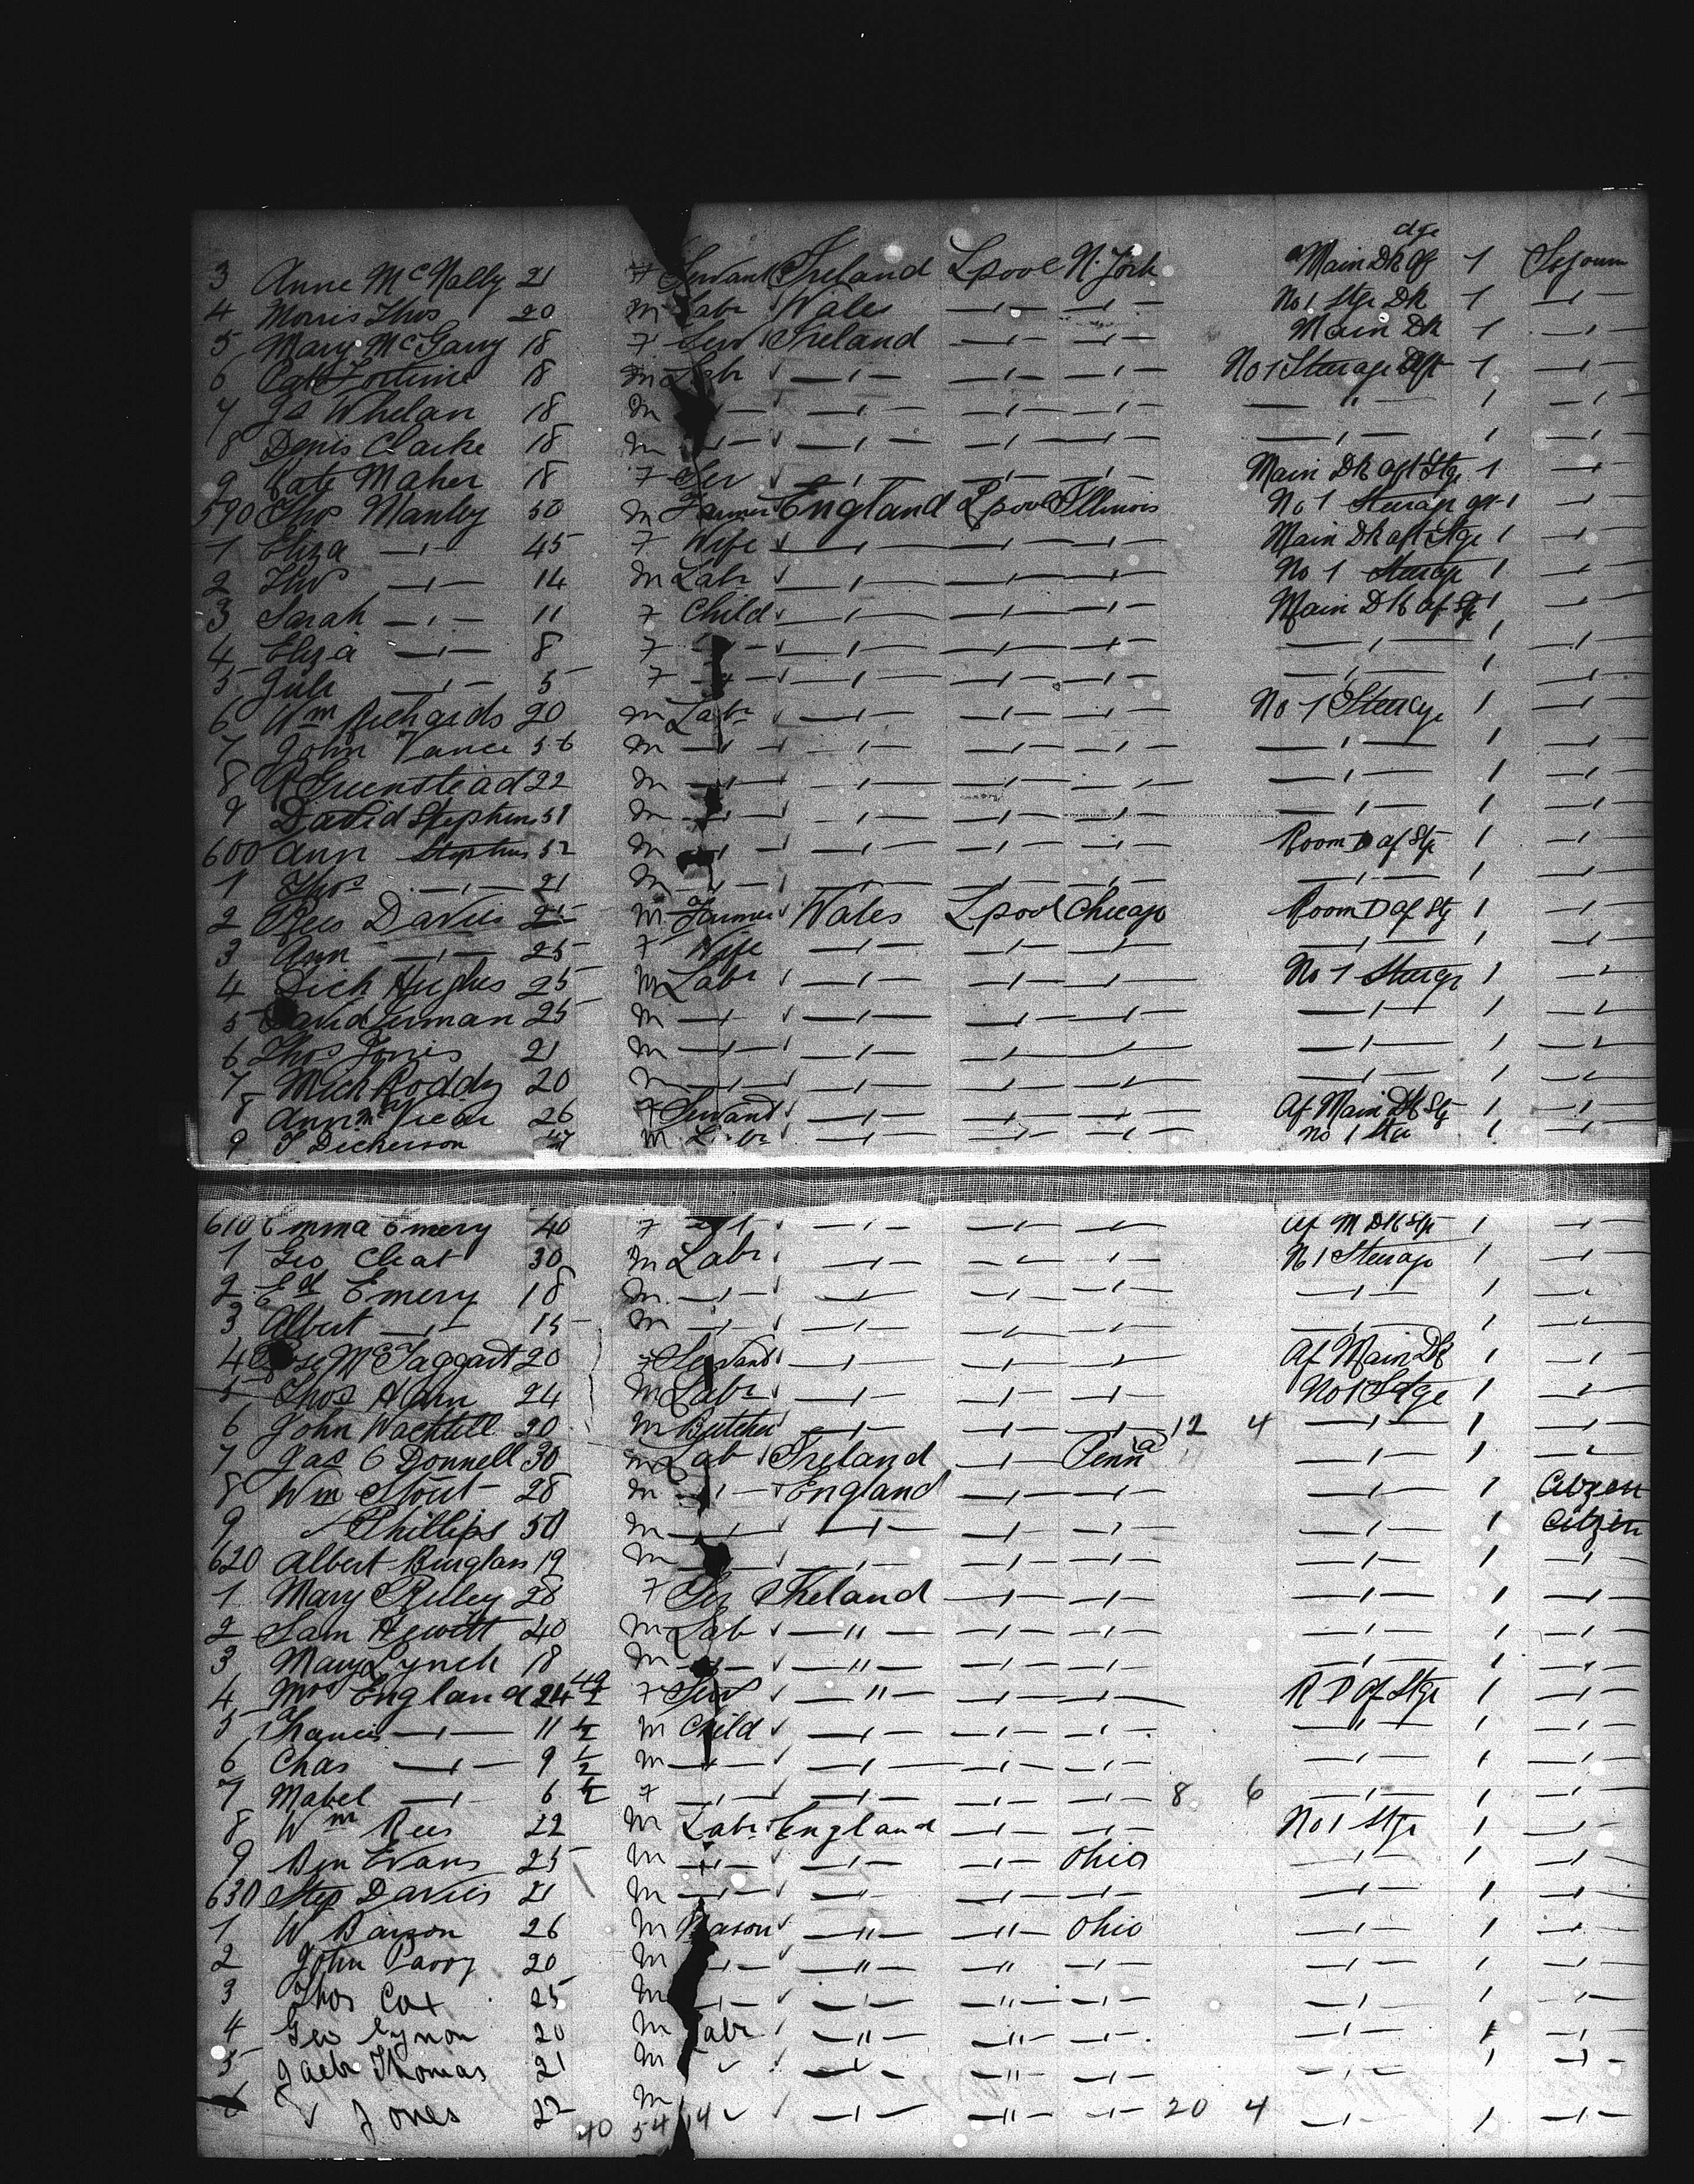 dge
3 Anne McNally 21 F Servant Ireland Lpool N. York Main Dk Af 1 Sojourn
4 Morris Thos 20 M Labr Wales —〃— —〃— No 1 Stge Dk 1 —〃—
5 Mary McGarry 18 F Serv Ireland —〃— —〃— Main Dk 1 —〃—
6 Fortune 18 M Labr —〃— —〃— —〃— No 1 Steerage Aft 1 —〃—
7 Js Whelan 18 M —〃— —〃— —〃— —〃— —〃— 1 —〃—
8 Denis Clarke 18 M —〃— —〃— —〃— —〃— —〃— 1 —〃—
9 Kate Maher 18 F Ser —〃— —〃— —〃— Main Dk aft Stge 1 —〃—
590 Thos Manley 50 M Farmer England Lpool Illinois No 1 Steerage 1
1 Eliza —〃— 45 F Wife —〃— —〃— —〃— Main Dk aft Stge 1 —〃—
2 Thos —〃— 14 M Labr —〃— —〃— —〃— No 1 Steerage 1 —〃—
3 Sarah —〃— 11 F Child —〃— —〃— —〃— Main Dk af Stg 1 —〃—
4 Eliza —〃— 8 F —〃— —〃— —〃— —〃— —〃— 1 —〃—
5 Jule —〃— 5 F —〃— —〃— —〃— —〃— —〃— 1 —〃—
6 Wm Richards 20 M Labr —〃— —〃— —〃— No 1 Steerage 1 —〃—
7 John Vance 56 M —〃— —〃— —〃— —〃— —〃— 1 —〃—
8 R Greenstead 22 M —〃— —〃— —〃— —〃— —〃— 1 —〃—
9 David Stephens 51 M —〃— —〃— —〃— —〃— —〃— 1 —〃—
600 Ann Stephens 52 M —〃— —〃— —〃— —〃— Room D af Stge 1 —〃—
1 Thos —〃— 21 M —〃— —〃— —〃— —〃— —〃— 1 —〃—
2 Rees Davies 25 M Farmer Wales Lpool Chicago Room D af Stg 1 —〃—
3 Ann —〃— 25 F Wife —〃— —〃— —〃— —〃— 1 —〃—
4 Dick Hughes 25 M Labr —〃— —〃— —〃— No 1 Steerge 1 —〃—
5 David 25 M —〃— —〃— —〃— —〃— —〃— 1 —〃—
6 Thos 21 M —〃— —〃— —〃— —〃— —〃— 1 —〃—
7 Mich Roddy 20 M —〃— —〃— —〃— —〃— —〃— 1 —〃—
8 Ann 26 F Servant —〃— —〃— —〃— Af Main Dk Stg 1 —〃—
9 J Dickerson M Labr —〃— —〃— —〃— No 1 Ste 1 —〃—
610 Emma Emery 40 F —〃— —〃— —〃— —〃— Af M Dk Stge 1 —〃—
1 Geo Cheat 30 M Labr —〃— —〃— —〃— No 1 Steerage 1 —〃—
2 Ed Emery 18 M —〃— —〃— —〃— —〃— —〃— 1 —〃—
3 Albert —〃— 15 M —〃— —〃— —〃— —〃— —〃— 1 —〃—
4 Rose McTaggart 20 F Servant —〃— —〃— —〃— Af Main Dk 1 —〃—
5 Thos Ahern 24 M Labr —〃— —〃— —〃— No 1 Stge 1 —〃—
6 John Wachtell 20 M Butcher —〃— —〃— —〃— 12 4 —〃— 1 —〃—
7 Jas O Donnell 30 M Lab Ireland —〃— Penna —〃— 1 —〃—
8 Wm Stout 28 M —〃— England —〃— —〃— —〃— 1 Citizen
9 Phillips 50 M —〃— —〃— —〃— —〃— —〃— 1 Citizen
620 Albert Burglass 19 M —〃— —〃— —〃— —〃— —〃— 1 —〃—
1 Mary Rilley 28 F Ser Ireland —〃— —〃— —〃— 1 —〃—
2 Sam Hewitt 40 M Lab —〃— —〃— —〃— —〃— 1 —〃—
3 Mary Lynch 18 M —〃— —〃— —〃— —〃— —〃— 1 —〃—
4 Mrs England F Serv —〃— —〃— —〃— R D Af Stge 1 —〃—
5 Francis —〃— 11 1/2 M Child —〃— —〃— —〃— —〃— 1 —〃—
6 Chas —〃— 9 1/2 M —〃— —〃— —〃— —〃— —〃— 1 —〃—
7 Mabel —〃— 6 1/2 F —〃— —〃— —〃— —〃— 8 6 —〃— 1 —〃—
8 Wm Rees 22 M Labr England —〃— —〃— No 1 Stge 1 —〃—
9 Ben Evans 25 M —〃— —〃— —〃— Ohio —〃— 1 —〃—
630 Step Davies 21 M —〃— —〃— —〃— —〃— —〃— 1 —〃—
1 W Barron 26 M Mason —〃— —〃— Ohio —〃— 1 —〃—
2 John Parry 20 M —〃— —〃— —〃— —〃— —〃— 1 —〃—
3 Thos Cox 25 M —〃— —〃— —〃— —〃— —〃— 1 —〃—
4 Geo Eynon 20 M Labr —〃— —〃— —〃— —〃— 1 —〃—
5 Jacb Thomas 21 M —〃— —〃— —〃— 1 —〃—
6 Jones 22 M —〃— —〃— —〃— 20 4 —〃— 1 —〃—
40 54 14